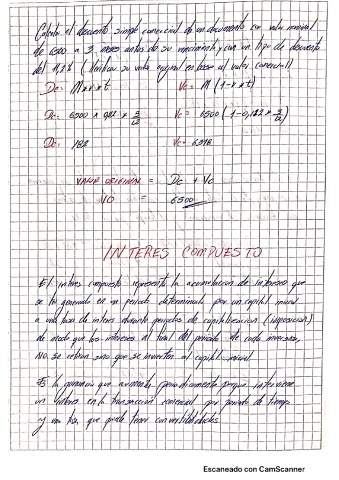 Calcular el descuento simple comercial de un documento con valor nominal
de 6500 a 3 meses antes de su vencimiento y con un tipo de descuento
del 11,2% (Verificar su valor original en base al valor comercial)
Dc: M x r x t Vc = M (1-r x t)
Dc: 6500 x 0,112 x 3/12 Vc = 6500 (1-0,112 x 3/12)
Dc: 182 Vc = 6318
VALOR ORIGINAL = Dc + Vc
VO = 6500
INTERES COMPUESTO
El interes compuesto representa la acumulacion de intereses que
se ha generado en un periodo determinado por un capital inicial
a una tasa de interes durante periodos de capitalizacion (imposicion)
de modo que los intereses al final del periodo de cada inversion,
NO se retiran sino que se invierten al capital inicial
Es la ganancia que aumenta periodicamente segun interviene
un interes en la transaccion comercial por periodo de tiempo
y una tasa, que puede tener convertibilidades
Escaneado con CamScanner